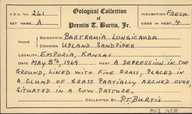 Oological Collection
of
Permit T. Burtis, Jr.
A.O.U. No. 261
Set No. A
Incubation Fresh
Eggs in Set 4
Name Bartramia Longicauda
Common Upland Sandpiper
Locality Emporia, Kansas
Date May 8th, 1969 Nest A depression in the
ground, lined with fine grass, placed in
a clump of grass partially arched over,
situated in a cow pasture.
Collected by P.T. Burtis